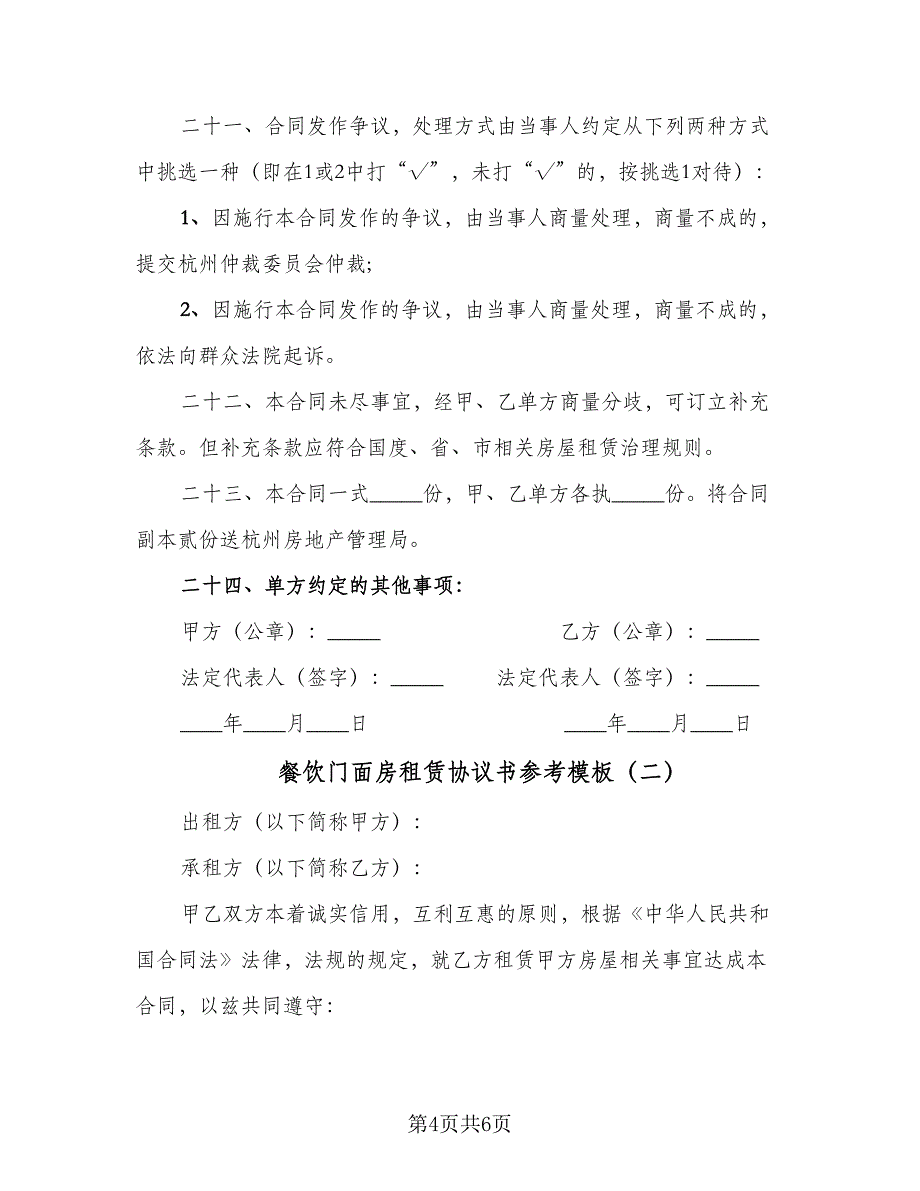 二十一、合同发作争议，处理方式由当事人约定从下列两种方式
中挑选一种（即在1或2中打“√”，未打“√”的，按挑选1对待）：
1、因施行本合同发作的争议，由当事人商量处理，商量不成的，
提交杭州仲裁委员会仲裁;
2、因施行本合同发作的争议，由当事人商量处理，商量不成的，
依法向群众法院起诉。
二十二、本合同未尽事宜，经甲、乙单方商量分歧，可订立补充
条款。但补充条款应符合国度、省、市相关房屋租赁治理规则。
二十三、本合同一式_____份，甲、乙单方各执_____份。将合同
副本贰份送杭州房地产管理局。
二十四、单方约定的其他事项：
甲方（公章）：_____ 乙方（公章）：_____
法定代表人（签字）：_____ 法定代表人（签字）：_____
____年____月____日 ____年____月____日
餐饮门面房租赁协议书参考模板（二）
出租方（以下简称甲方）：
承租方（以下简称乙方）：
甲乙双方本着诚实信用，互利互惠的原则，根据《中华人民共和
国合同法》法律，法规的规定，就乙方租赁甲方房屋相关事宜达成本
合同，以兹共同遵守：
第4页共6页